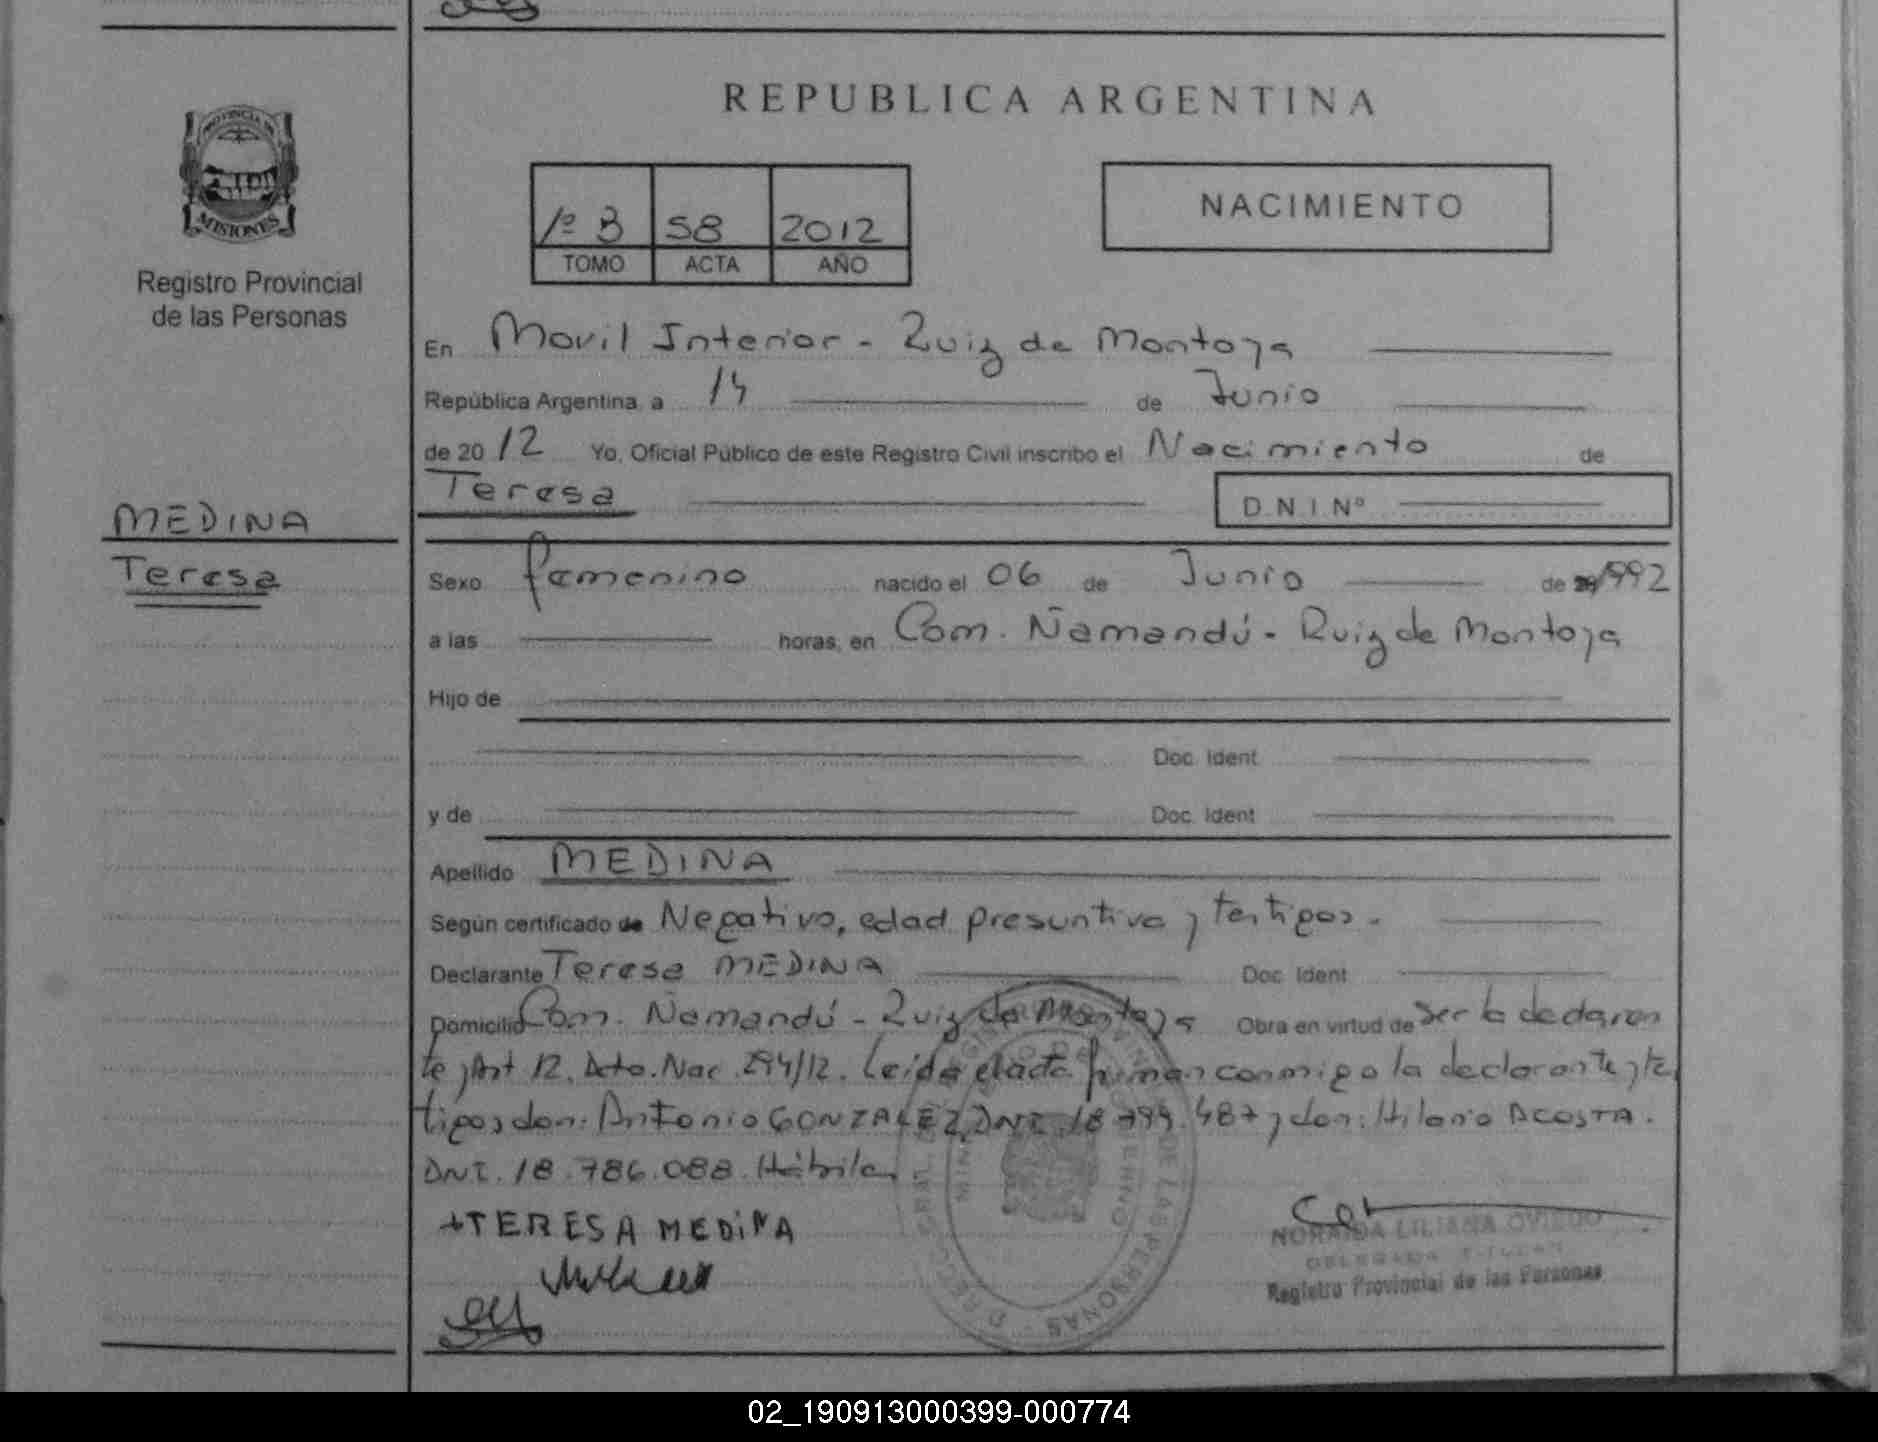 REPUBLICA ARGENTINA
PROVINCIA DE
MISIONES
Registro Provincial
de las Personas
1º B 58 2012
TOMO ACTA AÑO
NACIMIENTO
En Movil Interior - Ruiz de Montoya
República Argentina, a 14 de Junio
de 2012 Yo, Oficial Público de este Registro Civil inscribo el Nacimiento de
Teresa
D.N.I. Nº
MEDINA
Teresa
Sexo femenino nacido el 06 de Junio de 1992
a las horas, en Com. Ñamandú - Ruiz de Montoya
Hijo de
Doc. Ident
y de Doc. Ident
Apellido MEDINA
Según certificado de Negativo, edad presuntiva y testigos.
Declarante Teresa MEDINA Doc. Ident
Domicilio Com. Ñamandú - Ruiz de Montoya Obra en virtud de ser la declaran
te y Art 12. Dcto. Nac. 294/12. Leida el acta firman conmigo la declarante y tes
tigos don: Antonio GONZALEZ, DNI. 18.799.487 y don: Hilario ACOSTA.
DNI. 18.786.088. Hábiles
+TERESA MEDINA
NORAIDA LILIANA OVIEDO
DELEGADA TITULAR
Registro Provincial de las Personas
02_190913000399-000774